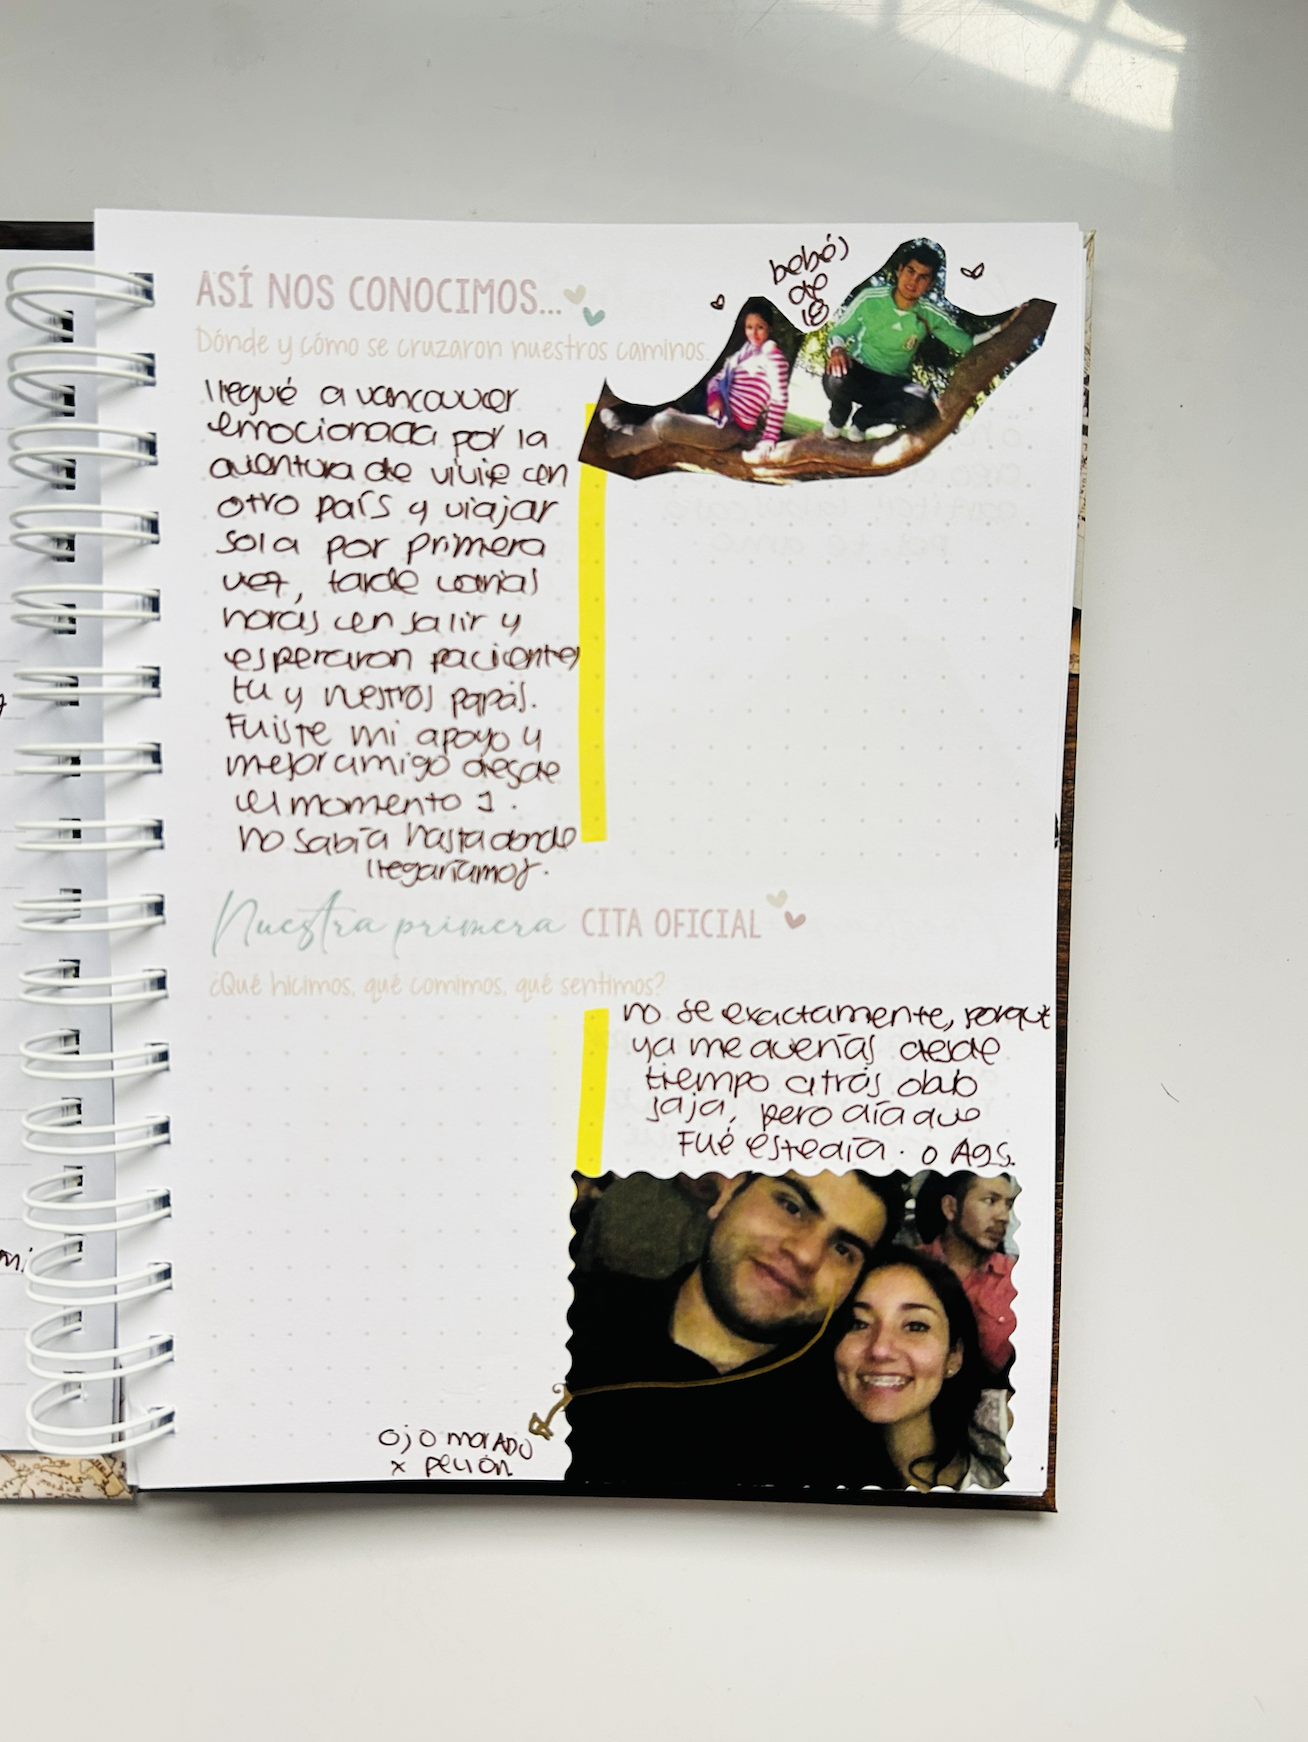 ASÍ NOS CONOCIMOS...
Dónde y cómo se cruzaron nuestros caminos.
bebés
de
18
llegué a vancouver
emocionada por la
aventura de vivir en
otro país y viajar
sola por primera
vez, tarde varias
horas en salir y
esperaron pacientes
tu y nuestros papás.
Fuiste mi apoyo y
mejor amigo desde
el momento 1.
no sabía hasta donde
llegaríamos.
Nuestra primera CITA OFICIAL
¿Qué hicimos, qué comimos, qué sentimos?
no se exactamente, porque
ya me querías desde
tiempo atrás obvio
jaja, pero diga que
Fué este día. o Ags.
ojo morADO
x peleón